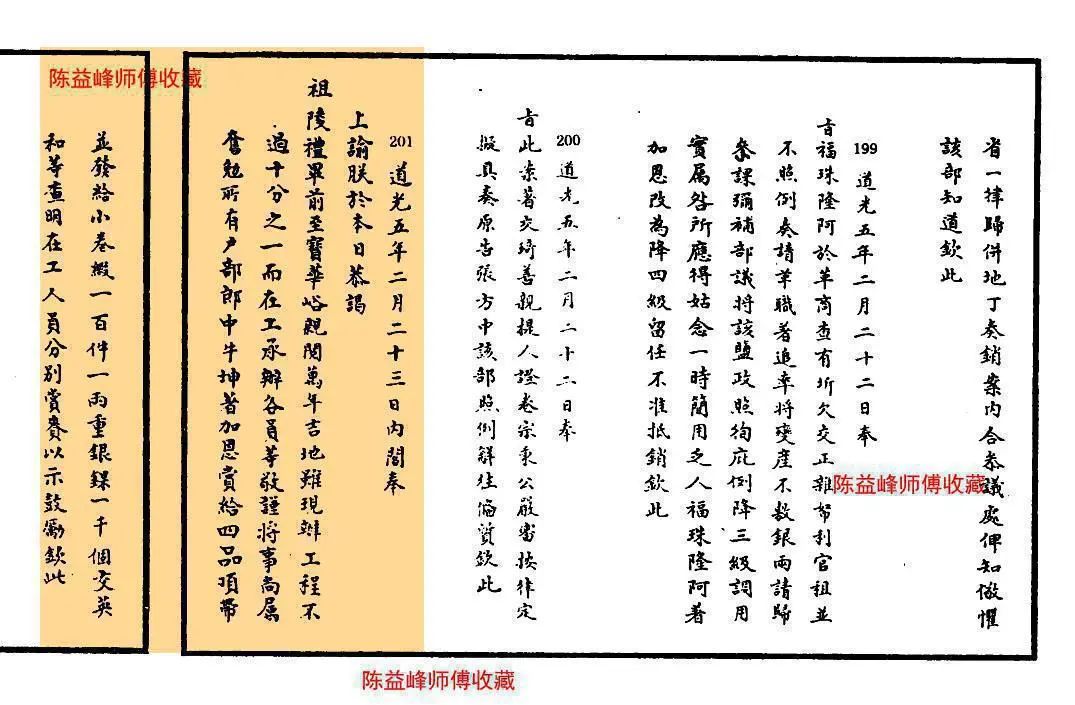 省一律歸併地丁奏銷案內合忝議處俾知儆懼
該部知道欽此
199 道光五年二月二十二日奉
旨福珠隆阿於革商查有圻欠交正雜帑利官租並
不照例奏請革職著追率將變產不敷銀兩請歸
衆課彌補部議將該鹽政照徇庇例降三級調用
實屬咎所應得姑念一時簡用乏人福珠隆阿著
加恩改為降四級留任不准抵銷欽此
200 道光五年二月二十二日奉
旨此案著交琦善親提人證卷宗秉公嚴審按律定
擬具奏原告張方中該部照例解往備質欽此
201 道光五年二月二十三日內閣奉
上諭朕於本日恭謁
祖陵禮畢前至寶華峪親閱萬年吉地雖現辦工程不
過十分之一而在工承辦各員等敬謹將事尚屬
奮勉所有戶部郎中牛坤著加恩賞給四品項帶
並發給小卷緞一百件一兩重銀錁一千個交英
和等查明在工人員分別賞賚以示鼓勵欽此
陈益峰师傅收藏
陈益峰师傅收藏
陈益峰师傅收藏